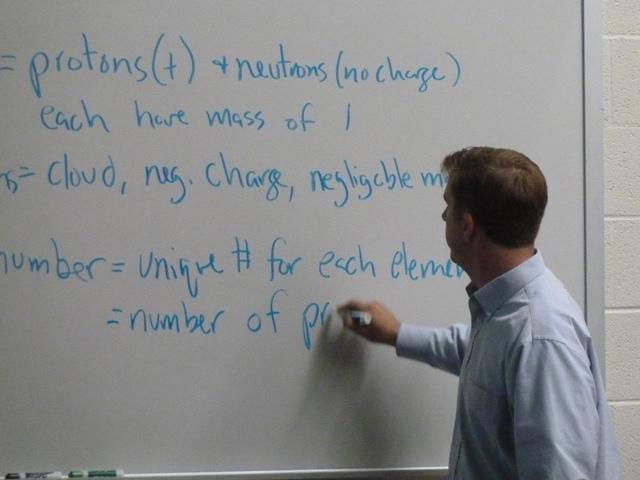 = protons(+) + neutrons (no charge)
each have mass of 1
= cloud, neg. charge, negligable m
number = unique # for each elemen
= number of pr